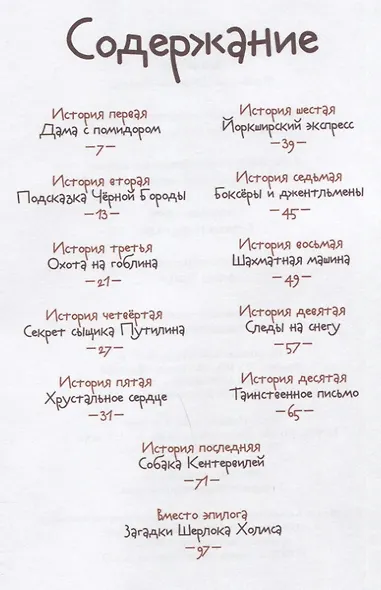 Содержание
История первая
Дама с помидором
–7–
История вторая
Подсказка Чёрной Бороды
–13–
История третья
Охота на гоблина
–21–
История четвёртая
Секрет сыщика Путилина
–27–
История пятая
Хрустальное сердце
–31–
История шестая
Йоркширский экспресс
–39–
История седьмая
Боксёры и джентльмены
–45–
История восьмая
Шахматная машина
–49–
История девятая
Следы на снегу
–57–
История десятая
Таинственное письмо
–65–
История последняя
Собака Кентервилей
–71–
Вместо эпилога
Загадки Шерлока Холмса
–97–